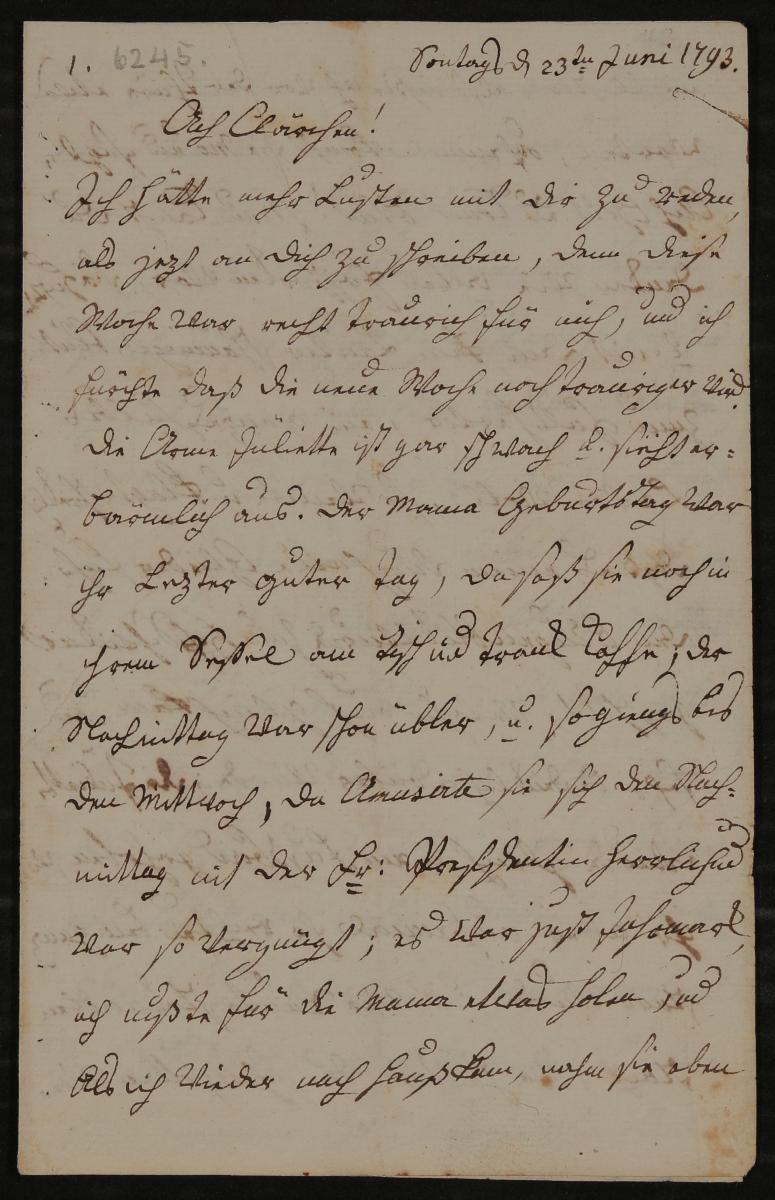 1. 6245. Sontags d 23ten Juni 1793.
Ach Clärchen!
Ich hätte mehr Lusten mit dir zu reden,
als jezt an dich zu schreiben, denn diese
Woche war recht traurich für mich, und ich
fürchte daß die neue Woche noch trauriger wird.
die Arme Juliette ist gar schwach u. sieht er=
bärmlich aus. der Mama Geburtstag war
ihr Lezter guter Tag, da saß sie noch in
ihrem Sessel am Tisch und tranck Caffe, der
Nachmittag war schon übler, u. so giengs bis
den Mittwoch, da Amusirte sie sich den Nach=
mittag mit der Fr: Presidentin herrlich und
war so vergnügt; es war just Jahrmark,
ich mußte für die Mama etwas holen und
Als ich wieder nach Hauß kam, nahm sie eben